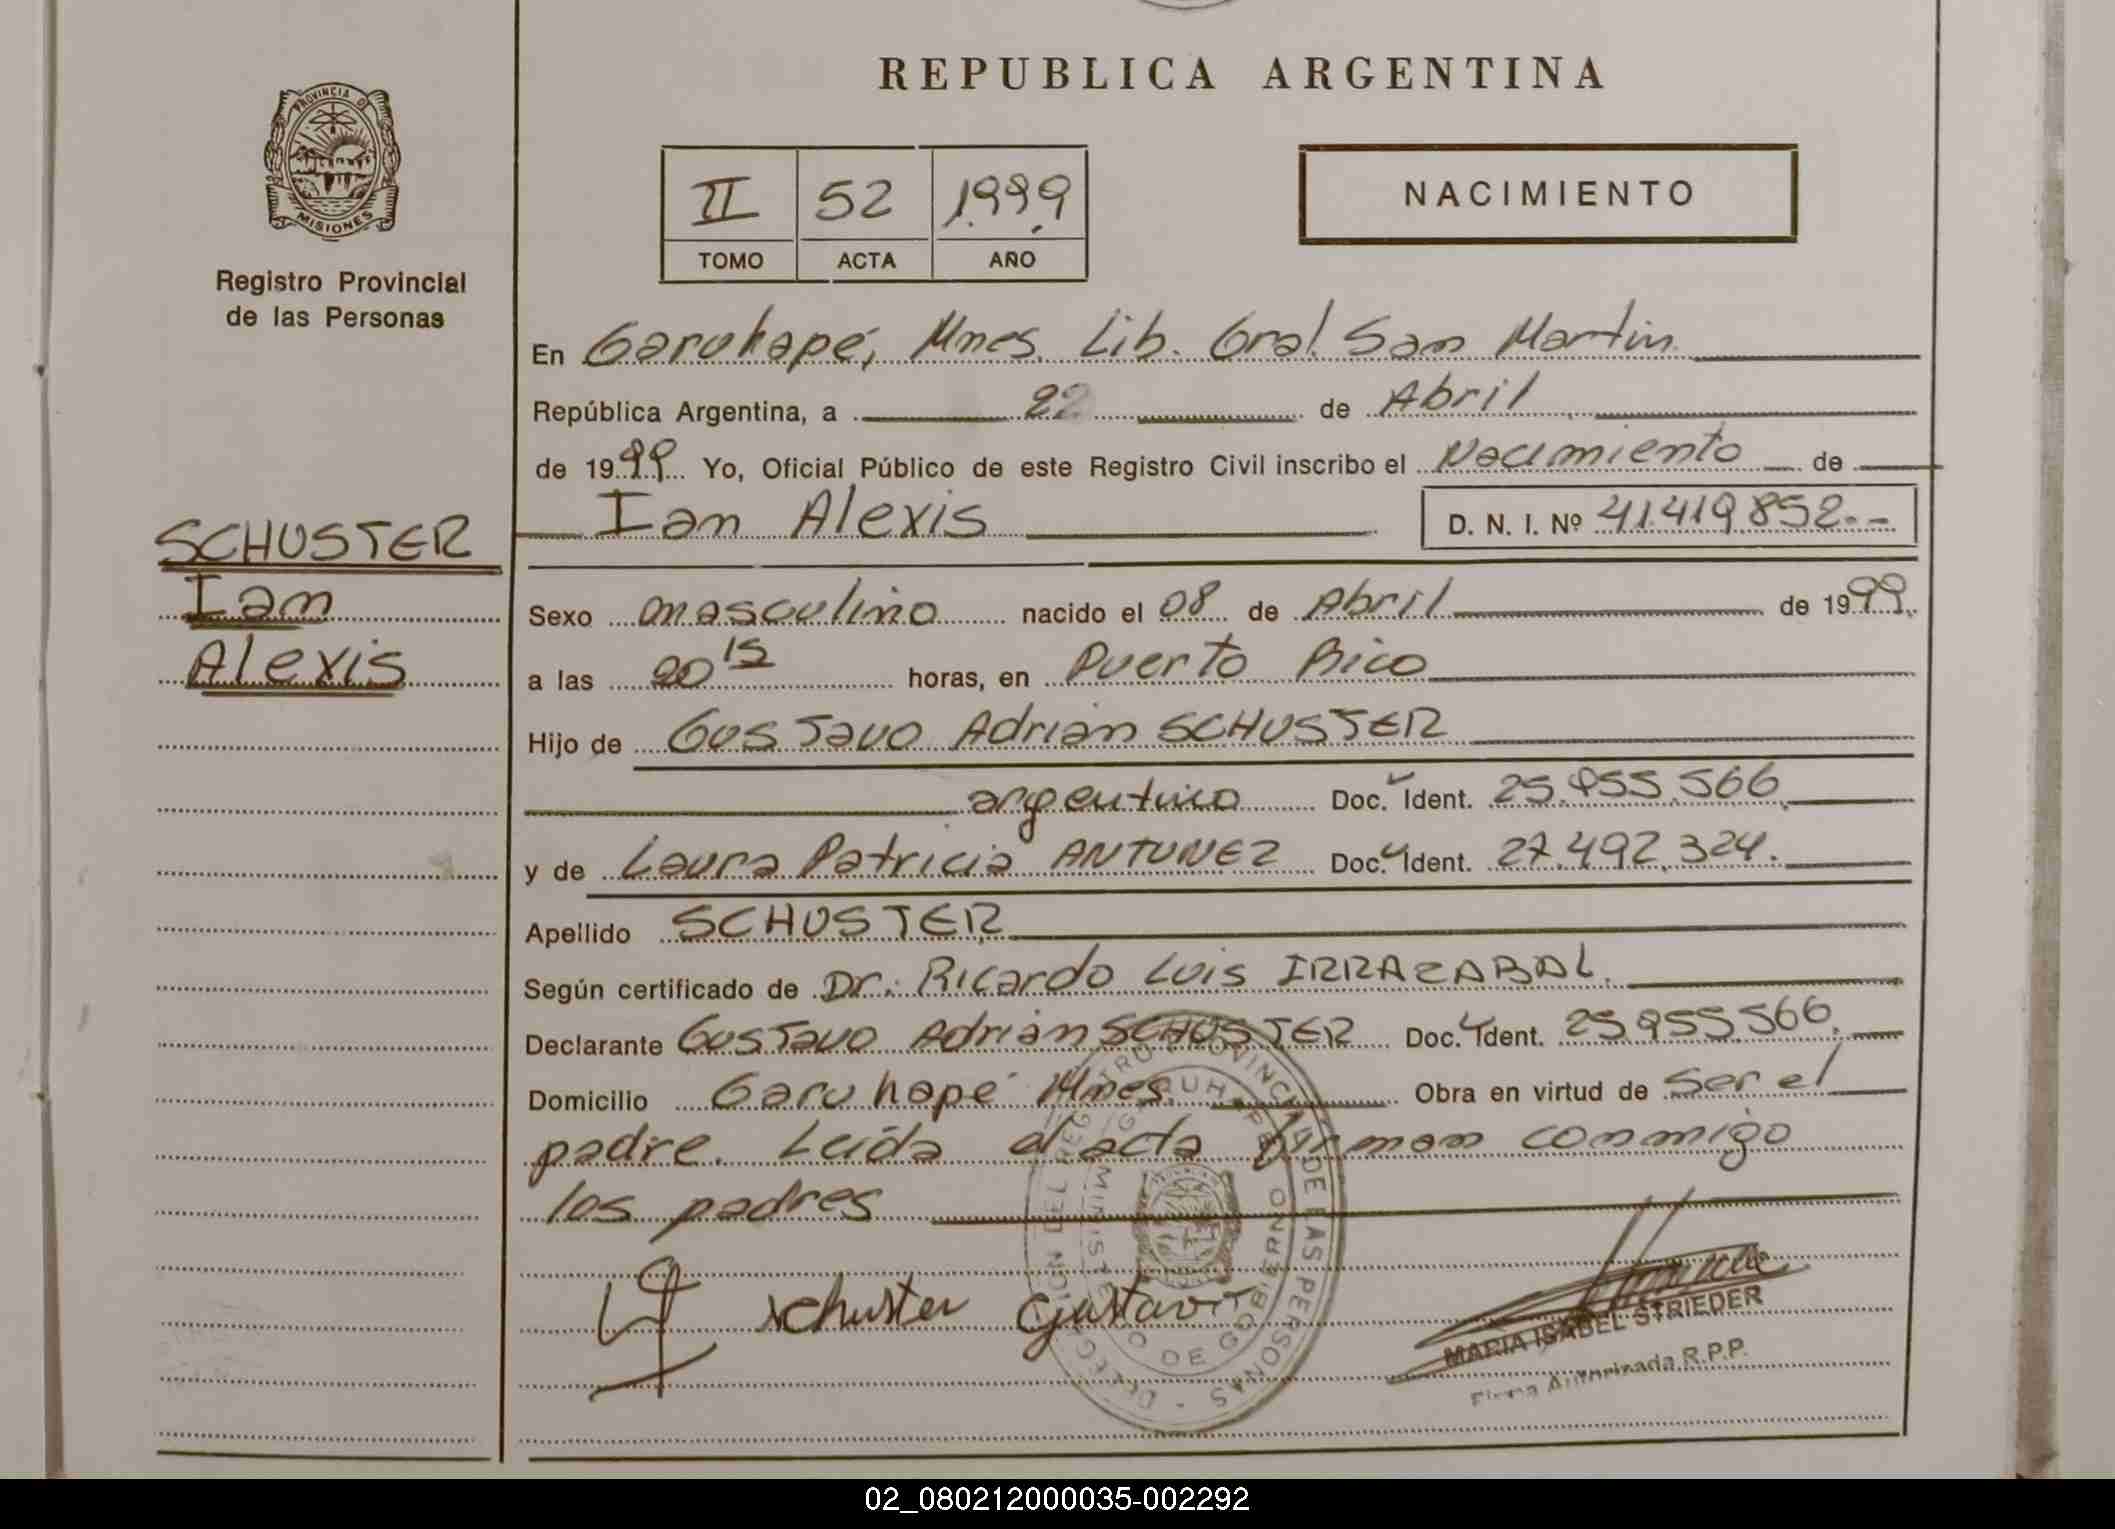 REPUBLICA ARGENTINA
PROVINCIA DE
MISIONES
Registro Provincial
de las Personas
II 52 1999
TOMO ACTA AÑO
NACIMIENTO
En Garuhapé, Mnes. Lib. Gral. San Martín
República Argentina, a 22 de Abril
de 1999 Yo, Oficial Público de este Registro Civil inscribo el Nacimiento de
Ian Alexis D. N. I. Nº 41.419.852.-
SCHUSTER
Ian
Alexis
Sexo masculino nacido el 08 de Abril de 1999.
a las 20 15 horas, en Puerto Rico
Hijo de Gustavo Adrián SCHUSTER
argentino Doc. Ident. 25.955.566
y de Laura Patricia ANTUNEZ Doc. Ident. 27.492.324.
Apellido SCHUSTER
Según certificado de Dr. Ricardo Luis IRRAZABAL.
Declarante Gustavo Adrián SCHUSTER Doc. Ident. 25.955.566.
Domicilio Garuhapé Mnes. Obra en virtud de ser el
padre. Leída el acta firman conmigo
los padres
Schuster Gustavo
DELEGACION DEL REGISTRO PROVINCIAL DE LAS PERSONAS
GARUHAPE
MINISTERIO DE GOBIERNO
MARIA ISABEL STRIEDER
Firma Autorizada R.P.P.
02_080212000035-002292